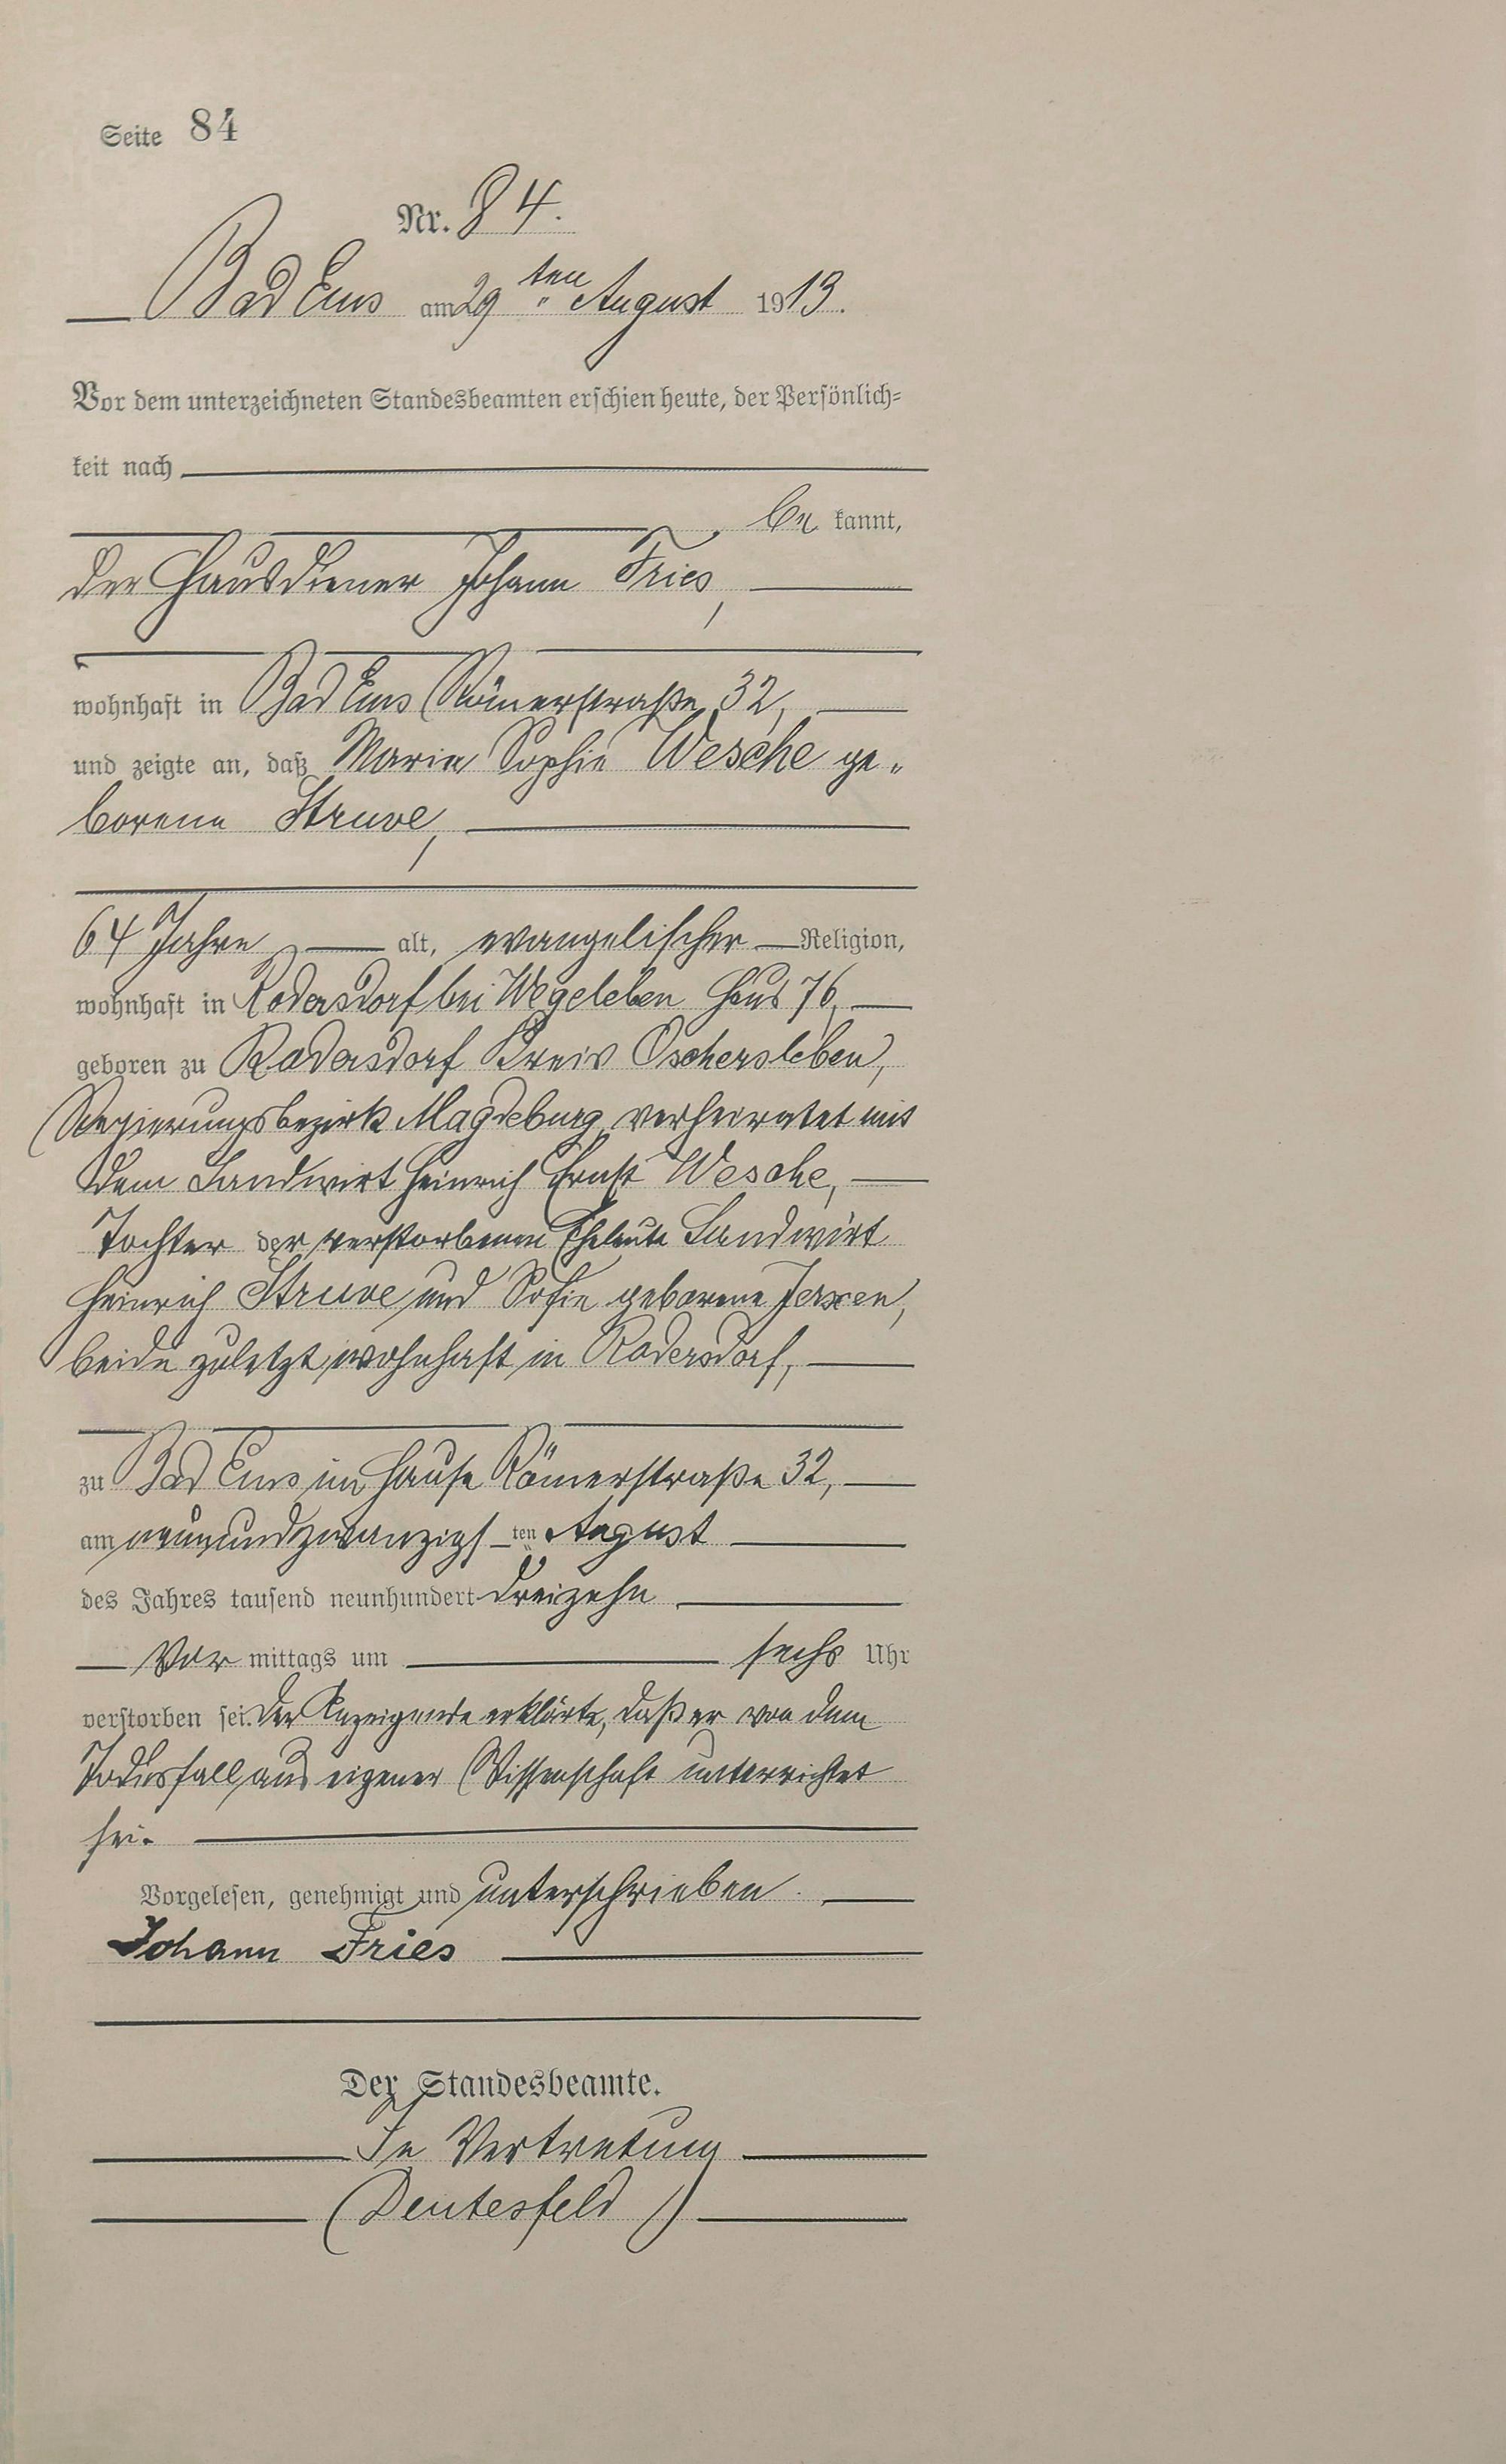 Seite 84
Nr. 84.
Bad Ems am 29ten August 1913.
Vor dem unterzeichneten Standesbeamten erschien heute, der Persönlich-
keit nach
be kannt,
der Hausdiener Johann Fries,
wohnhaft in Bad Ems Römerstraße 32,
und zeigte an, daß Marie Sophie Wesche ge-
borene Struve,
64 Jahre alt, evangelischer Religion,
wohnhaft in Rodersdorf bei Wegeleben Haus 76,
geboren zu Rodersdorf Kreis Oschersleben,
Regierungsbezirk Magdeburg, verheiratet mit
dem Landwirt Heinrich Ernst Wesche,
Tochter der verstorbenen Eheleute Landwirt
Heinrich Struve und Sofie geborene Jerxen,
beide zuletzt wohnhaft in Rodersdorf,
zu Bad Ems im Hause Römerstraße 32,
am neunundzwanzigsten August
des Jahres tausend neunhundert dreizehn
Vor mittags um sechs Uhr
verstorben sei. Der Anzeigende erklärte, daß er von dem
Todesfall aus eigener Wissenschaft unterrichtet
sei.
Vorgelesen, genehmigt und unterschrieben.
Johann Fries
Der Standesbeamte.
In Vertretung
(Deutesfeld)